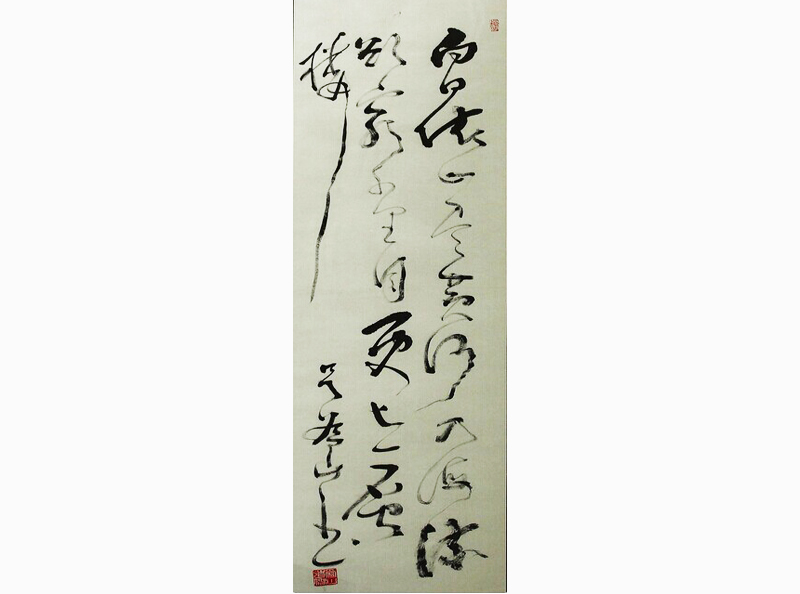 白日依山尽黄河入海流
欲穷千里目更上一层
楼